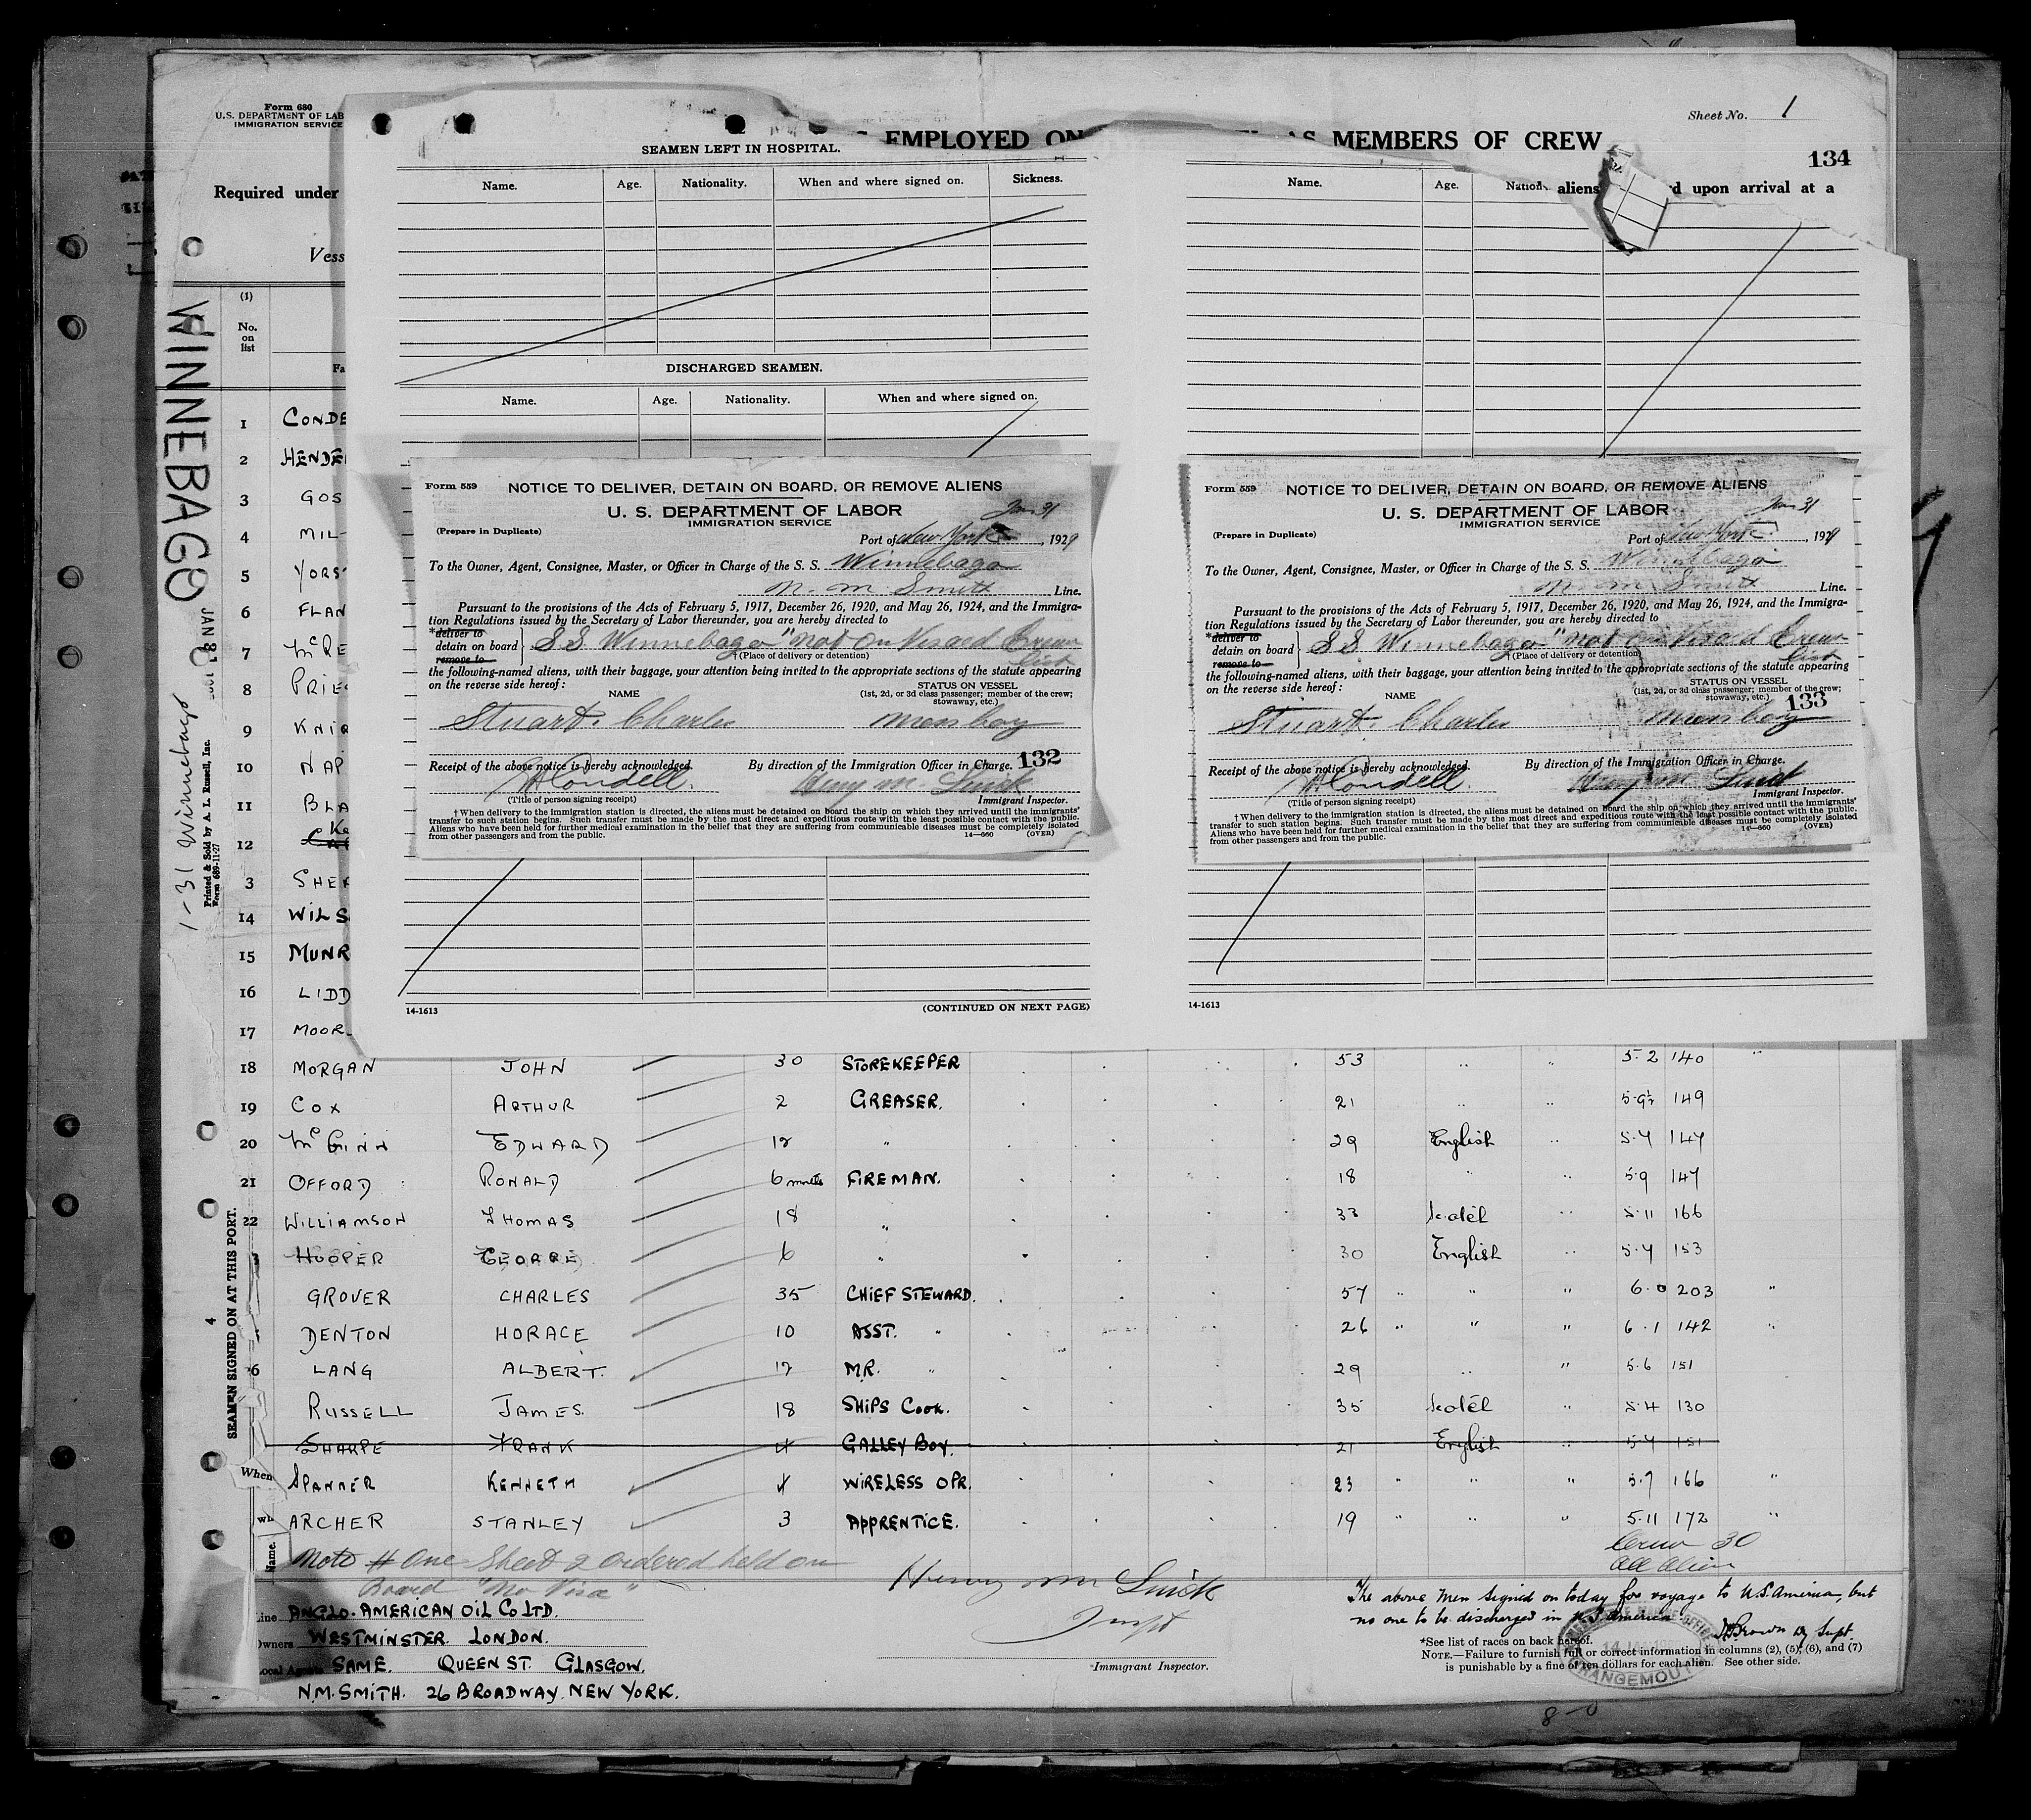 Form 680
U.S. DEPARTMENT OF LAB
IMMIGRATION SERVICE
Sheet No. 1
EMPLOYED ON AS MEMBERS OF CREW
134
Required under aliens upon arrival at a
Vess
WINNEBAGO
1-31 Winnebago
Printed & Sold by A. L. Russell, Inc.
Form 689-11-27
SEAMEN SIGNED ON AT THIS PORT.
4
SEAMEN LEFT IN HOSPITAL.
Name. Age. Nationality. When and where signed on. Sickness.
Name. Age. Nation
DISCHARGED SEAMEN.
Name. Age. Nationality. When and where signed on.
Form 559 NOTICE TO DELIVER, DETAIN ON BOARD, OR REMOVE ALIENS
U. S. DEPARTMENT OF LABOR
IMMIGRATION SERVICE
Jan 31
(Prepare in Duplicate) Port of New York, 1929
To the Owner, Agent, Consignee, Master, or Officer in Charge of the S. S. Winnebago
N. M Smith Line.
Pursuant to the provisions of the Acts of February 5, 1917, December 26, 1920, and May 26, 1924, and the Immigra-
tion Regulations issued by the Secretary of Labor thereunder, you are hereby directed to
*deliver to
detain on board } SS Winnebago "not on Visaed Crew
remove to list
†(Place of delivery or detention)
the following-named aliens, with their baggage, your attention being invited to the appropriate sections of the statute appearing
on the reverse side hereof:
NAME STATUS ON VESSEL
(1st, 2d, or 3d class passenger; member of the crew;
stowaway, etc.)
Stuart. Charles mess boy
132
Receipt of the above notice is hereby acknowledged. By direction of the Immigration Officer in Charge.
Condell. Henry M. Luick
(Title of person signing receipt) Immigrant Inspector.
†When delivery to the immigration station is directed, the aliens must be detained on board the ship on which they arrived until the immigrants'
transfer to such station begins. Such transfer must be made by the most direct and expeditious route with the least possible contact with the public.
Aliens who have been held for further medical examination in the belief that they are suffering from communicable diseases must be completely isolated
from other passengers and from the public. 14—660 (OVER)
14-1613 (CONTINUED ON NEXT PAGE)
Form 559 NOTICE TO DELIVER, DETAIN ON BOARD, OR REMOVE ALIENS
U. S. DEPARTMENT OF LABOR
IMMIGRATION SERVICE
Jan 31
(Prepare in Duplicate) Port of New York, 1929
To the Owner, Agent, Consignee, Master, or Officer in Charge of the S. S. Winnebago
N. M Smith Line.
Pursuant to the provisions of the Acts of February 5, 1917, December 26, 1920, and May 26, 1924, and the Immigra-
tion Regulations issued by the Secretary of Labor thereunder, you are hereby directed to
*deliver to
detain on board } SS Winnebago "not on Visaed Crew
remove to list
†(Place of delivery or detention)
the following-named aliens, with their baggage, your attention being invited to the appropriate sections of the statute appearing
on the reverse side hereof:
NAME STATUS ON VESSEL
(1st, 2d, or 3d class passenger; member of the crew;
stowaway, etc.)
133
Stuart. Charles mess boy
Receipt of the above notice is hereby acknowledged. By direction of the Immigration Officer in Charge.
Condell. Henry M Luick
(Title of person signing receipt) Immigrant Inspector.
†When delivery to the immigration station is directed, the aliens must be detained on board the ship on which they arrived until the immigrants'
transfer to such station begins. Such transfer must be made by the most direct and expeditious route with the least possible contact with the public.
Aliens who have been held for further medical examination in the belief that they are suffering from communicable diseases must be completely isolated
from other passengers and from the public. 14—660 (OVER)
14-1613
(1)
No. on list
Fa
1 CONDE
2 HENDE
3 GOS
4 MIL
5 YORS
6 FLAN
7 McRE
8 PRIE
9 KNI
10 NAP
11 BLA
12 Ke
3 SHE
14 WILS
15 MUNR
16 LIDD
17 MOOR
18 MORGAN JOHN 30 STOREKEEPER 53 " " 5-2 140 "
19 COX ARTHUR 2 GREASER. 21 " " 5-9½ 149
20 McGINN EDWARD 12 " 29 English " 5.7 147
21 OFFORD RONALD 6 months FIREMAN. 18 " " 5.9 147
22 WILLIAMSON THOMAS 18 " 33 Scotch " 5.11 166
3 HOOPER GEORGE 6 " 30 English " 5.7 153
GROVER CHARLES 35 CHIEF STEWARD. 57 " " " 6.0 203 "
DENTON HORACE 10 ASST. " 26 " " " 6.1 142 "
6 LANG ALBERT. 12 MR. " 29 " " 5.6 151
RUSSELL JAMES. 18 SHIPS COOK. 35 Scotch " 5.4 130
SHARPE FRANK 4 GALLEY BOY. 21 English " 5.7 151
SPANNER KENNETH 4 WIRELESS OPR. 23 " " " 5.7 166 "
ARCHER STANLEY 3 APPRENTICE. 19 " " " 5.11 172 "
When
wh
Name.
Crew 30
All Alien
Note # One Sheet 2 ordered held on
Board "No Visa"
Line ANGLO-AMERICAN OIL CO LTD.
Owners WESTMINSTER. LONDON.
Local Agents SAME. QUEEN ST. GLASGOW.
N.M. SMITH. 26 BROADWAY. NEW YORK.
Henry M Luick
Inspt
Immigrant Inspector.
The above men signed on today for voyage to U.S. America, but
no one to be discharged in U.S. America.
Brown Dy Supt.
GRANGEMOUTH
*See list of races on back hereof.
NOTE.—Failure to furnish full or correct information in columns (2), (5), (6), and (7)
is punishable by a fine of ten dollars for each alien. See other side.
8-0